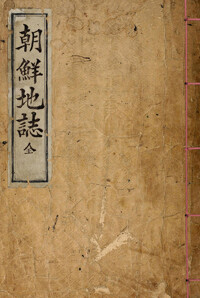 朝鮮地誌全